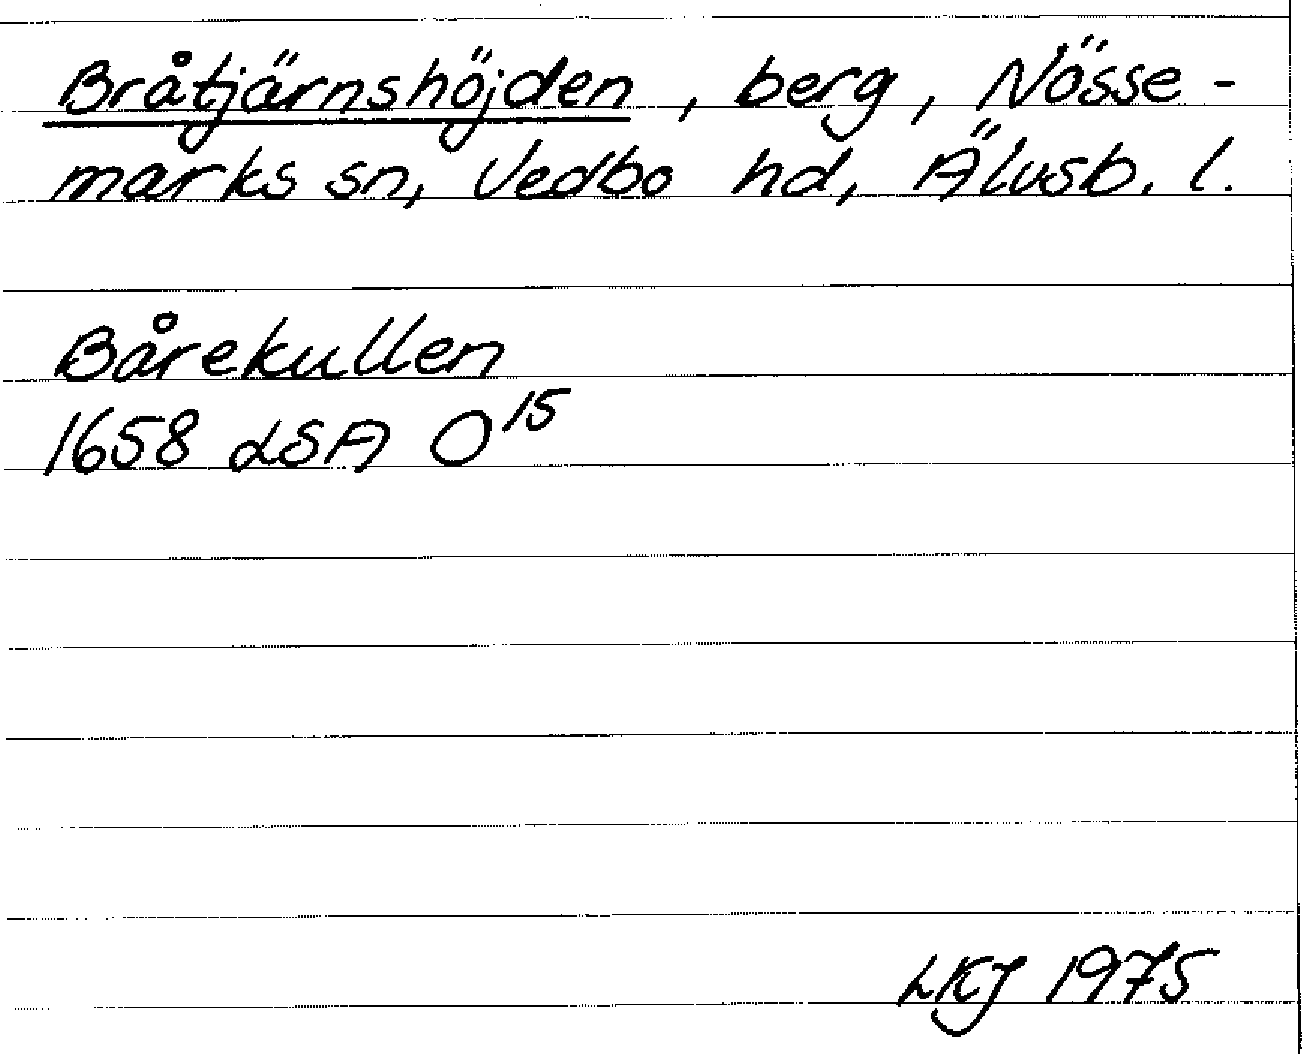 Bråtjärnshöjden, berg, Nösse-
marks sn, Vedbo hd, Älvsb. l.
Bårekullen
1658 LSA O¹⁵
LKJ 1975